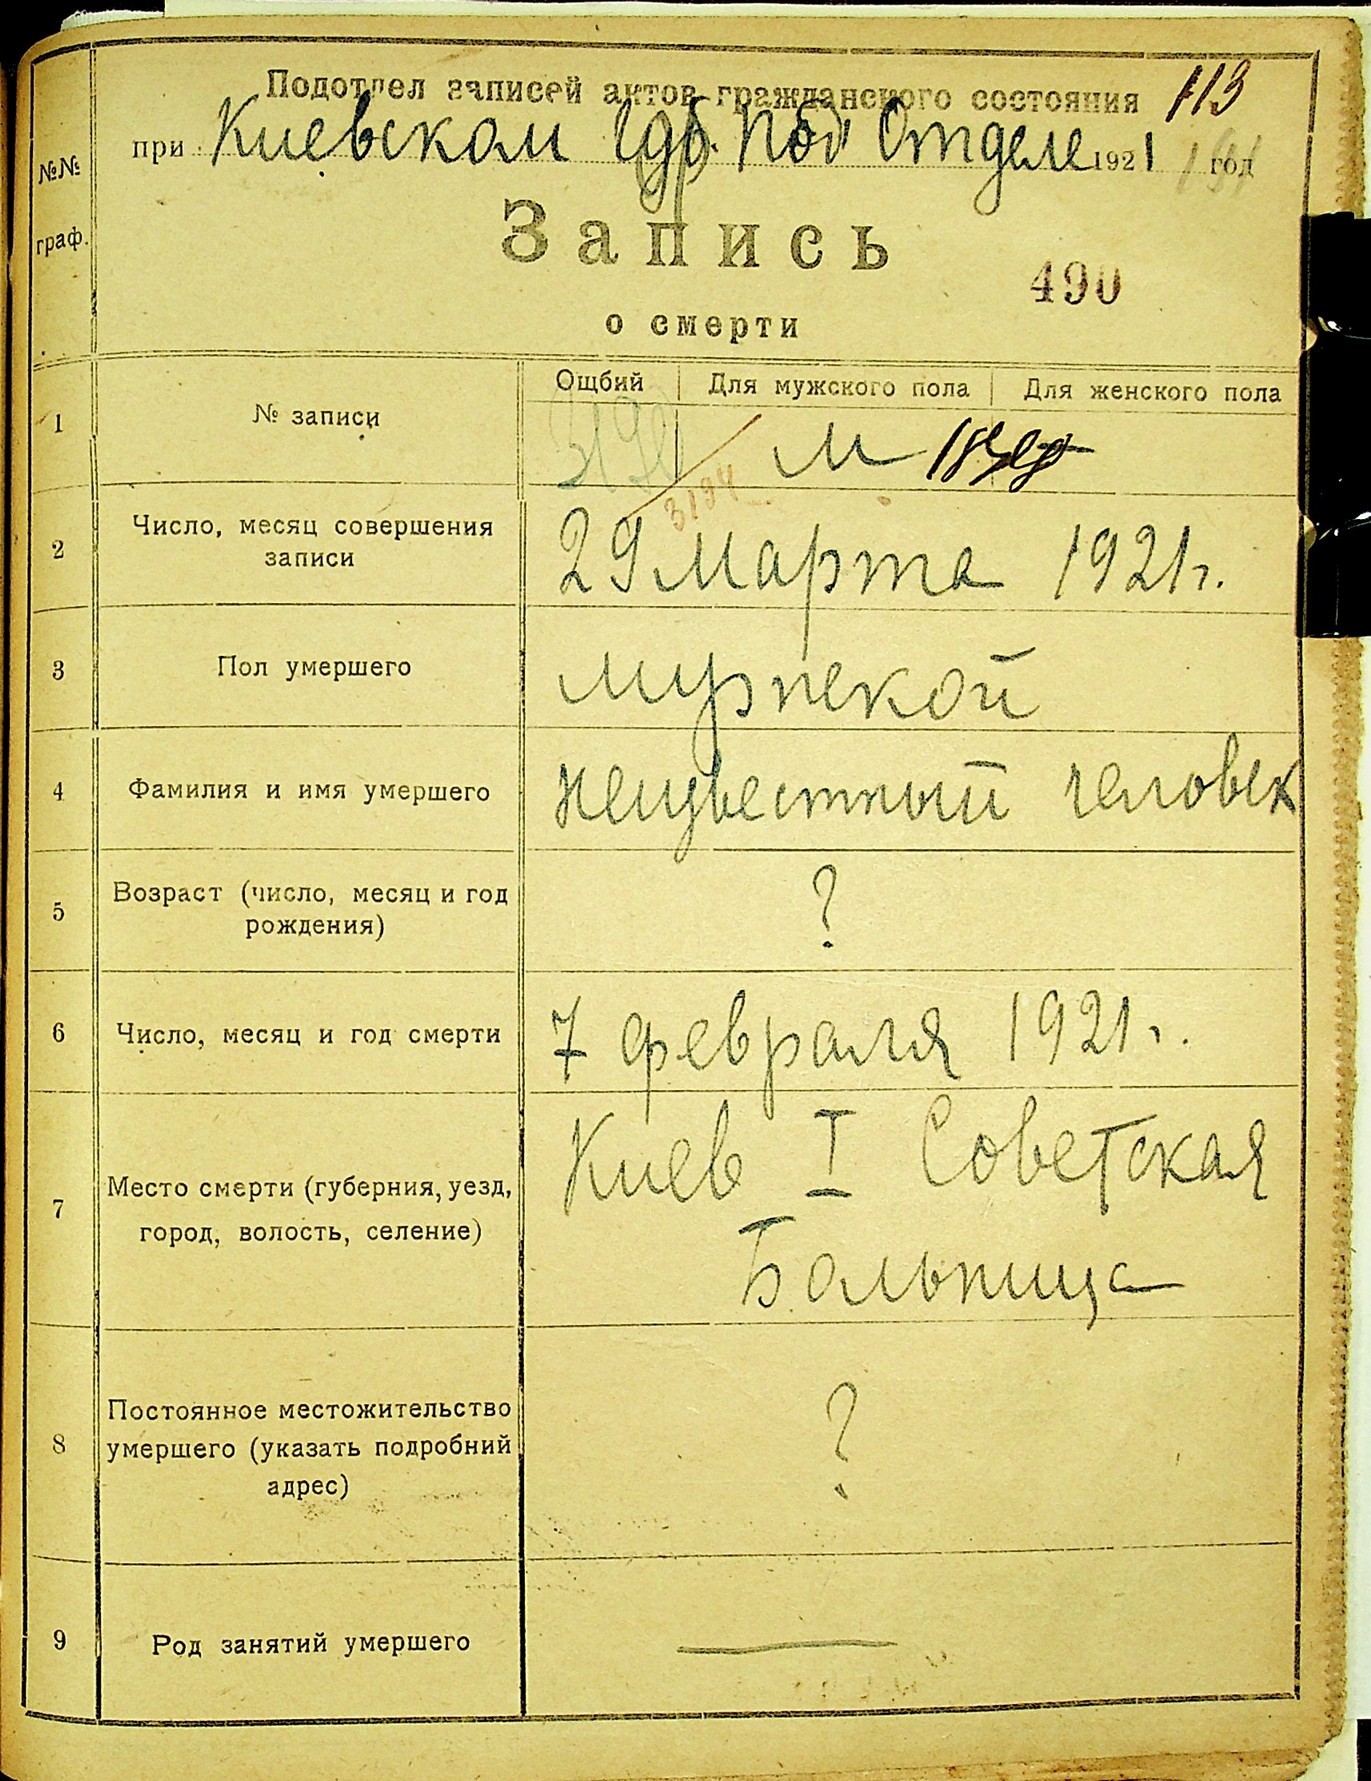 Подотдел записей актов гражданского состояния 113
при Киевском Губ. Под Отделе 1921 год
№№
граф.
Запись
490
о смерти
Ощбий Для мужского пола Для женского пола
1 № записи 3190 м
3194
2 Число, месяц совершения
записи
29 Марта 1921 г.
3 Пол умершего мужской
4 Фамилия и имя умершего неизвестный человек
5 Возраст (число, месяц и год
рождения)
?
6 Число, месяц и год смерти 7 февраля 1921 г.
7 Место смерти (губерния, уезд,
город, волость, селение)
Киев I Советская
Больница
8 Постоянное местожительство
умершего (указать подробний
адрес)
?
9 Род занятий умершего —